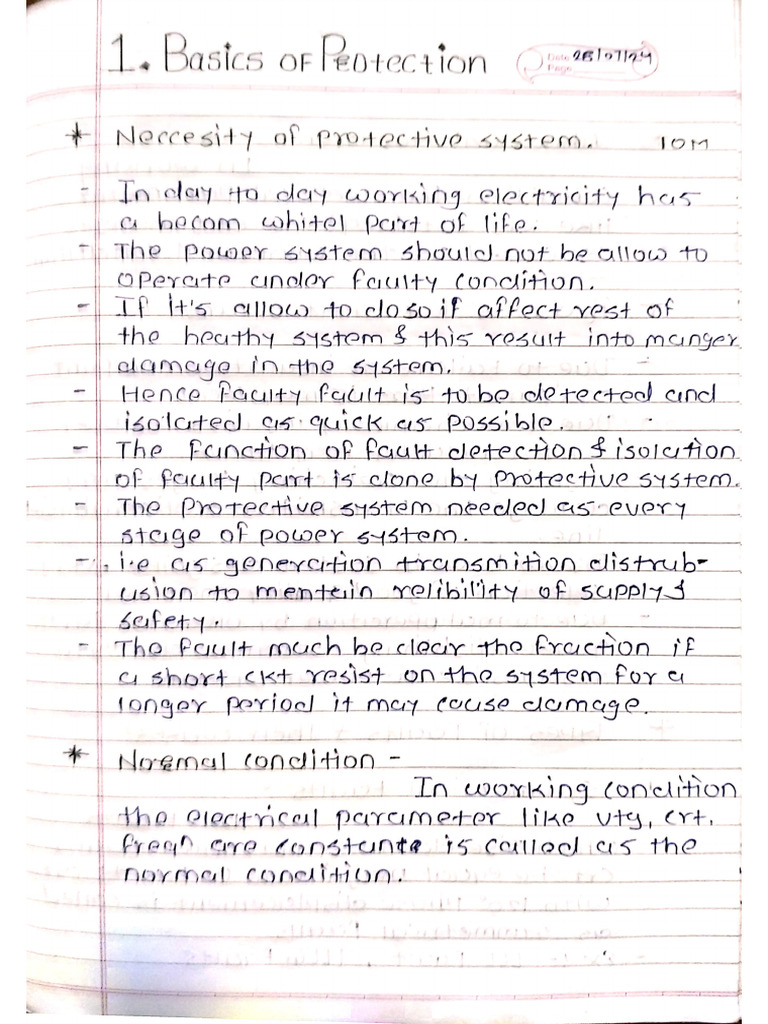 1. Basics of Protection
Date 26/07/24
Page
* Neccesity of protective system. 10M
- In day to day working electricity has
a becom whitel part of life.
- The power system should not be allow to
operate under faulty condition.
- If it's allow to do so if affect rest of
the heathy system & this result into manger
damage in the system.
- Hence faulty fault is to be detected and
isolated as quick as possible.
- The function of fault detection & isolation
of faulty part is done by protective system.
- The Protective system needed as every
stage of power system.
- i.e as generation transmition distrub-
usion to mentain relibility of supply &
safety.
- The fault much be clear the fraction if
a short ckt resist on the system for a
longer period it may cause damage.
* Normal condition -
In working condition
the electrical parameter like vtg, crt,
freqn are constante is called as the
normal condition.